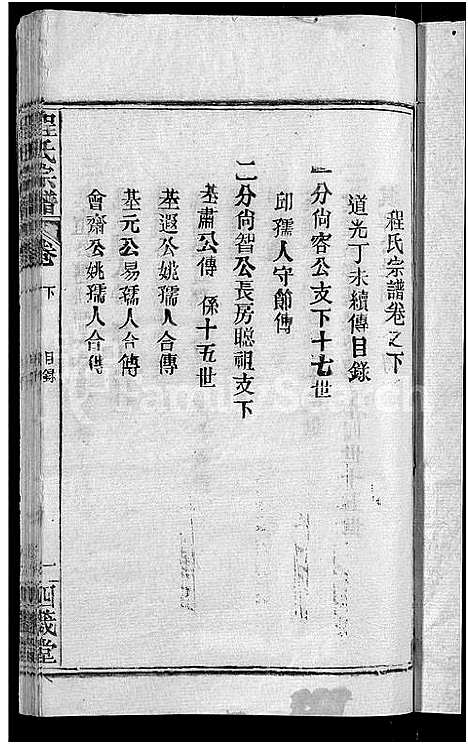 程氏宗譜卷之下
道光丁未續傳目錄
一分尙容公支下十七世
邱孺人守節傳
二分尙智公長房聰祖支下
基肅公傳 係十五世
基遐公姚孺人合傳
基元公易孺人合傳
會齋公姚孺人合傳
程氏宗譜 卷下 目錄 一 四箴堂
FamilySearch